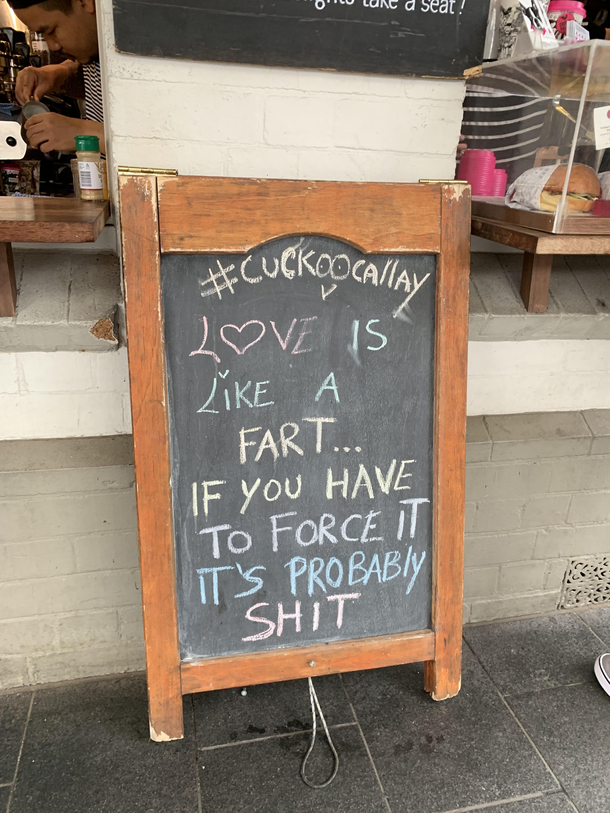 take a seat!
#CUCKOOCALLAY
LOVE IS
LIKE A
FART...
IF YOU HAVE
TO FORCE IT
IT'S PROBABLY
SHIT